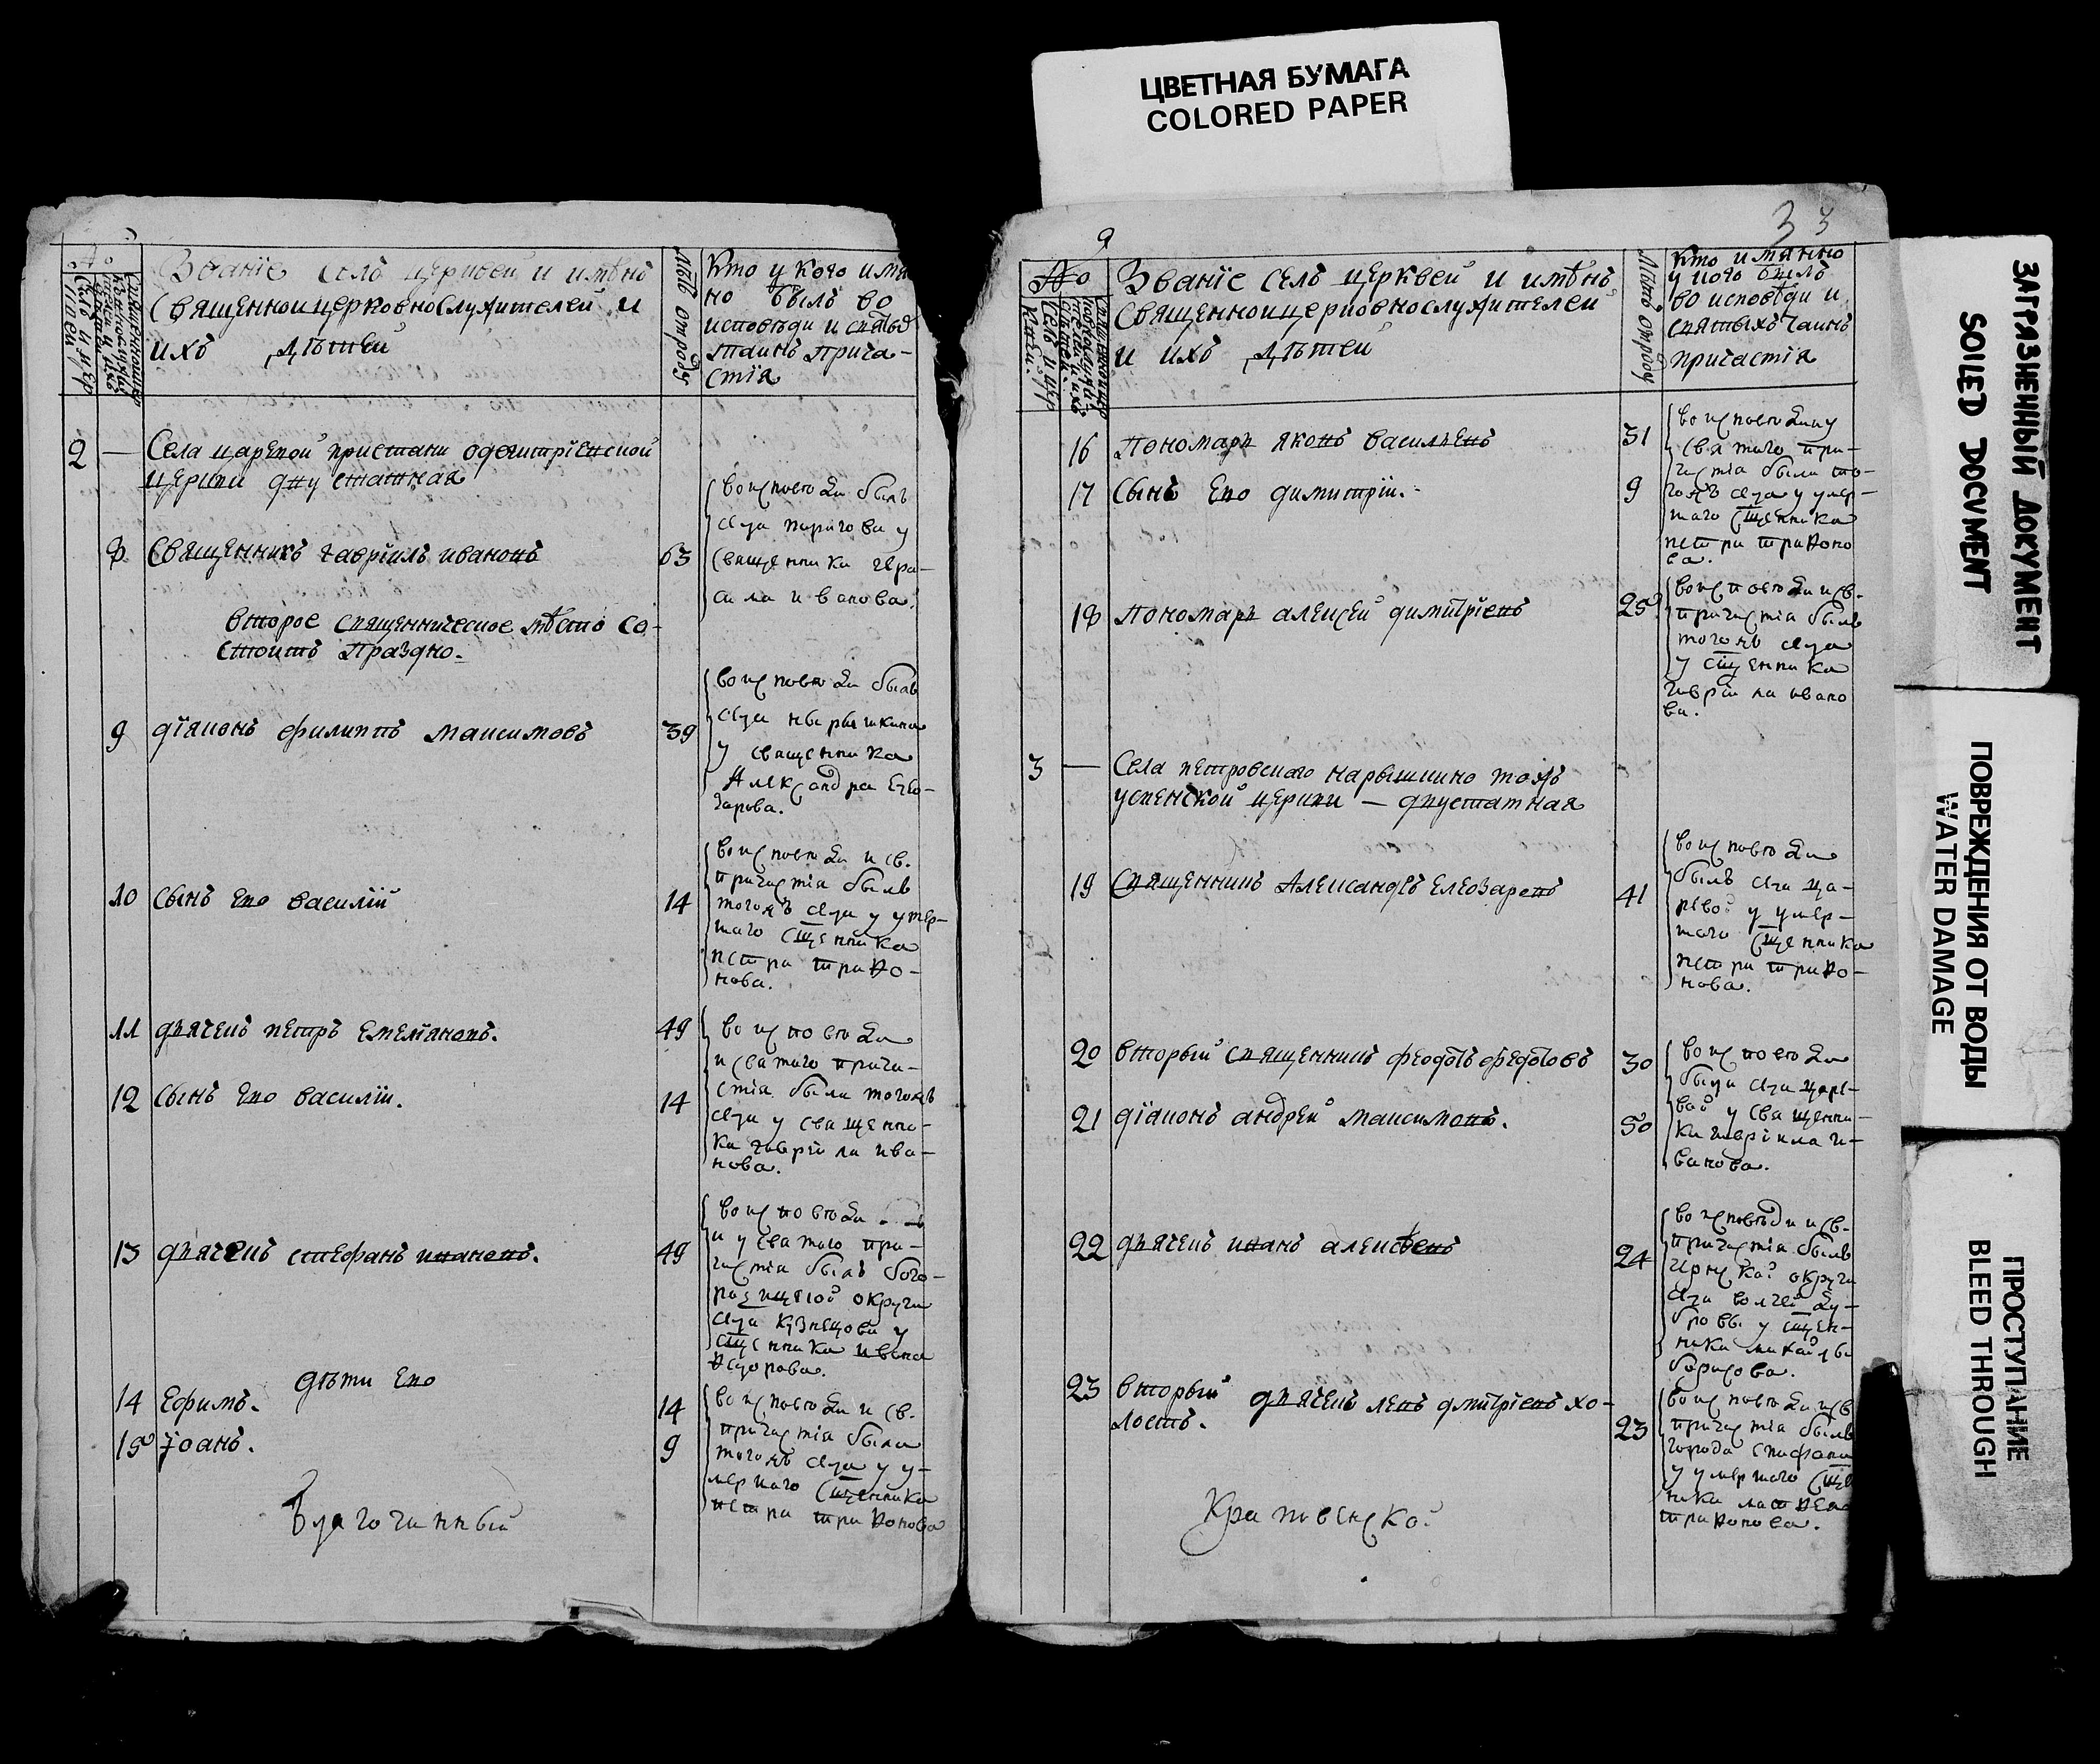 ЦВЕТНАЯ БУМАГА
COLORED PAPER
№
Званїе селъ церквей и имѣнъ
Священноицерковнослужителей и
ихъ дѣтей
Лѣтъ отроду
Кто у кого имя
но былъ во
исповѣди и святыхъ
таинъ прича-
стїя
2 — Села царевой пристани одегитрїевской
церкви двуштатная
8 Священникъ гаврїилъ ивановъ 63
воисповѣди былъ
села пиригова у
священника гера-
сима иванова.
второе священническое мѣсто со-
стоитъ праздно.
9 дїаконъ филиппъ максимовъ 39
воисповѣди былъ
села нарышкина
у священника
Александра Елео-
зарова.
10 сынъ Ево василїй 14
воисповѣди и св.
причастїя былъ
тогожъ села у умер-
шаго сщенника
петра трифо-
нова.
11 дьячекъ петръ Емелїановъ. 49
12 сынъ Ево василїи. 14
воисповѣди
и святаго прича-
стїя были тогожъ
села у священни-
ка гаврїила ива-
нова.
13 дьячекъ стефанъ ивановъ. 49
воисповѣди
и у святаго при-
частїя былъ бого-
родицкой округи
села Кузнецова у
сщенника ивана
федорова.
дѣти Ево
14 Ефимъ. 14
15 їоанъ. 9
воисповѣди и св.
причастїя были
тогожъ села у у-
мершаго сщенника
петра трифонова
Благочинный
33
№
Званїе селъ церквей и имѣнъ
Священноицерковнослужителей
и ихъ дѣтей
Лѣтъ отроду
Кто имянно
у кого былъ
во исповѣди и
святыхъ таинъ
причастїя
16 Пономарь яковъ васильевъ 31
17 Сынъ Ево димитрїи. 9
воисповѣди у
святаго при-
частїя были то-
гожъ села у умер-
шаго сщенника
петра трифоно
ва.
18 Пономарь алексей димитрїевъ 25
воисповѣди и св.
причастїя былъ
тогожъ села
у сщенника
гаврїила ивано
ва.
3 — Села петровскаго нарышкино тожъ
успенской церкви — двуштатная
19 Священникъ Александръ Елеозаревъ 41
воисповѣди
былъ села ца-
ревой у умер-
шаго сщенника
петра трифо-
нова.
20 вторый священникъ феодотъ федотовъ 30
21 дїаконъ андрей максимовъ. 50
воисповѣди
были села царе-
вой у священни-
ка гаврїила и-
ванова.
22 дьячекъ иванъ алексѣевъ 24
воисповѣди и св.
причастїя былъ
чернской округи
села волчей ду-
бровы у сщен-
ника михайлы
борисова.
23 вторый дьячекъ левъ дмитрїевъ хо-
лостъ. 23
воисповѣди и св
причастїя былъ
города епифани
у умершаго сще
ника матфея
трифонова.
Крапивенской
ЗАГРЯЗНЕННЫЙ ДОКУМЕНТ
SOILED DOCUMENT
ПОВРЕЖДЕНИЯ ОТ ВОДЫ
WATER DAMAGE
ПРОСТУПАНИЕ
BLEED THROUGH